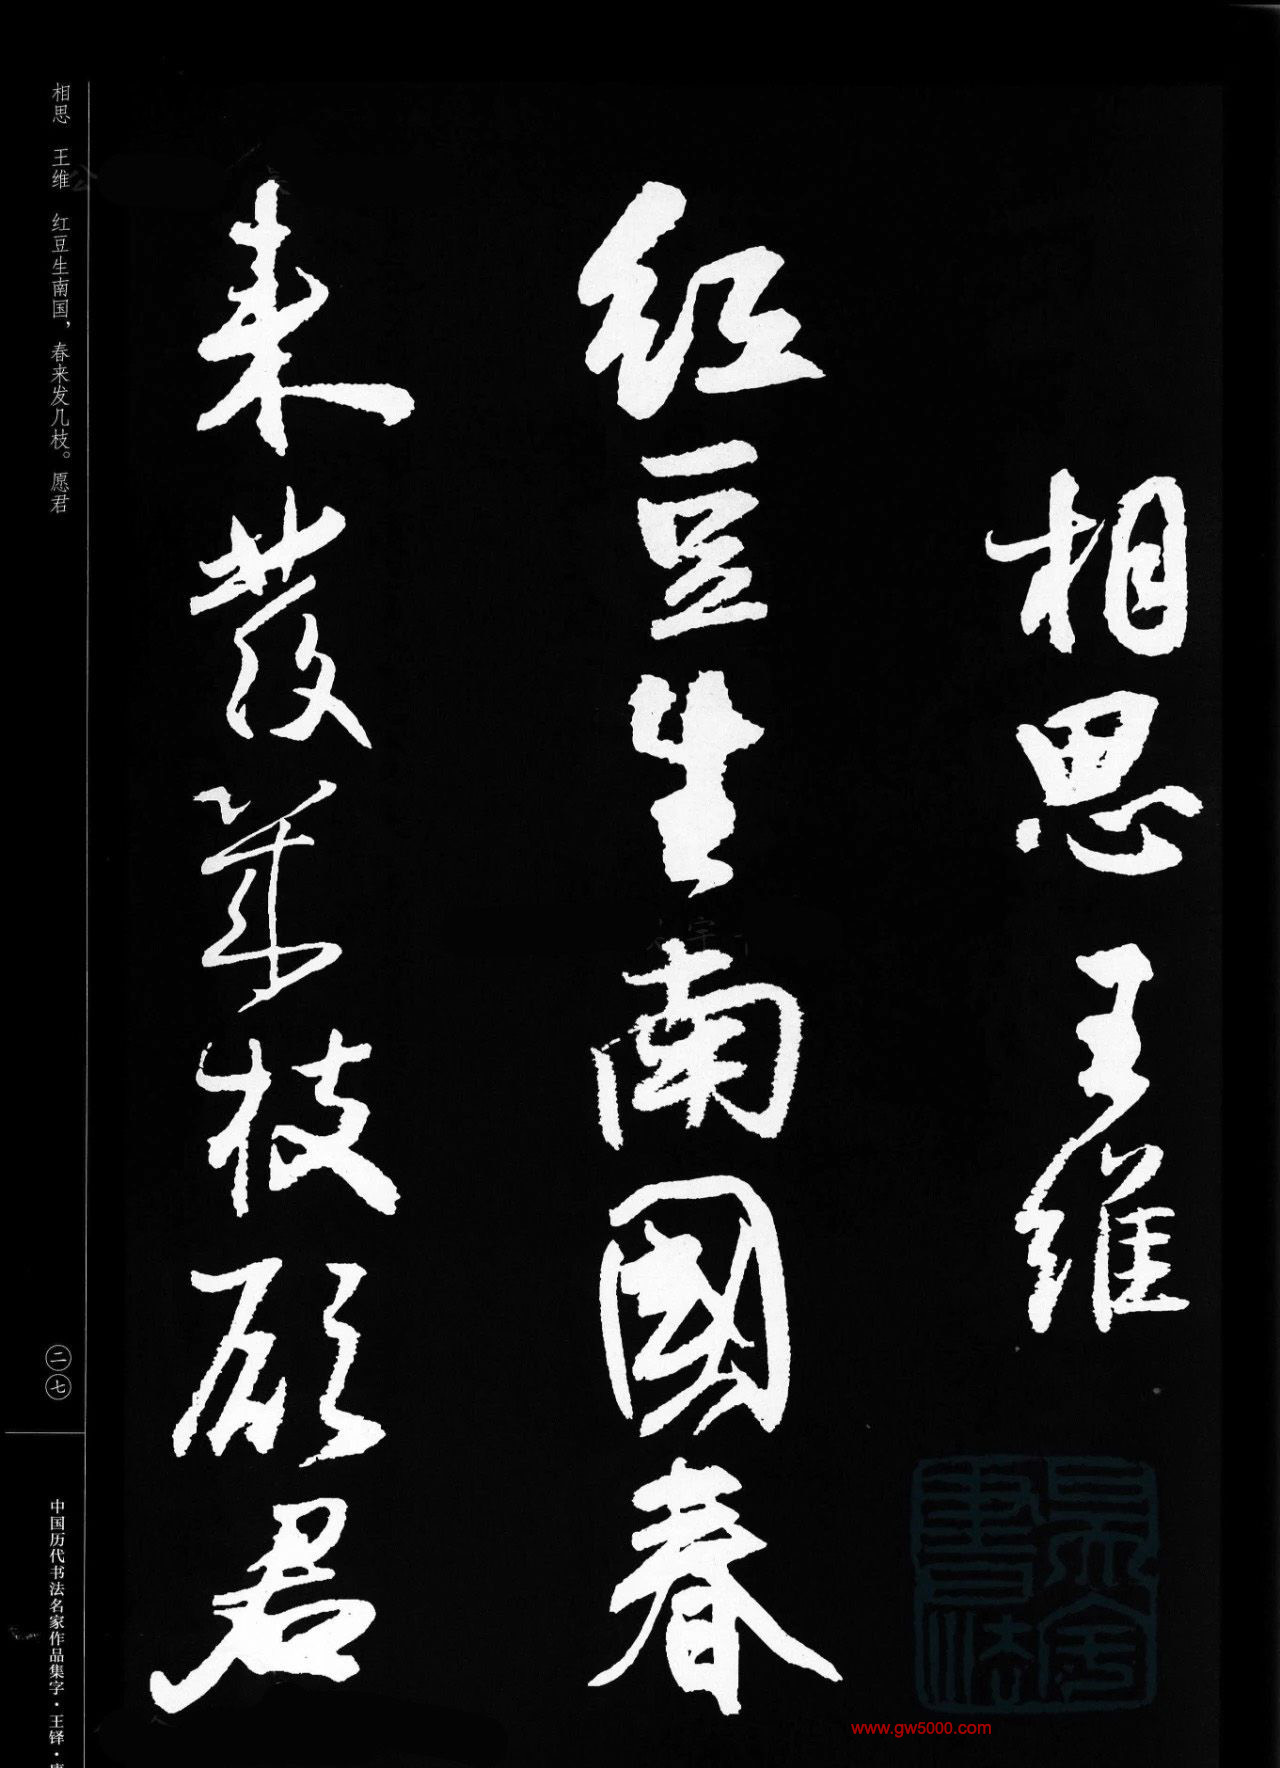 相思王维
红豆生南國春
来發幾枝願君
相思 王维 红豆生南国，春来发几枝。愿君
二七
中国历代书法名家作品集字·王铎·
www.gw5000.com